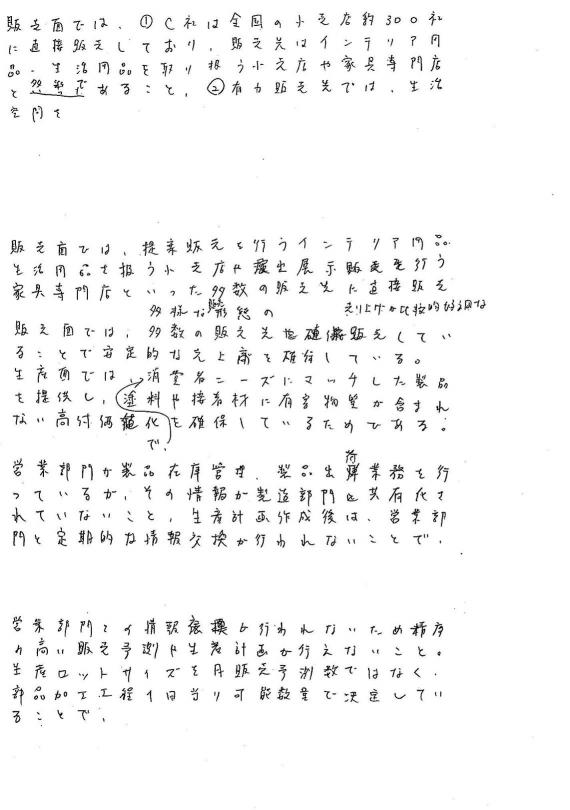 販売面では、①C社は全国の小売店約300社
に直接販売しており、販売先はインテリア用
品・生活用品を取り扱う小売店や家具専門店
と であること、②有力販売先では、生活
空間を
販売面では、提案販売を行うインテリア用品
生活用品を扱う小売店や 展示販売を行う
家具専門店といった多数の販売先に直接販売
多様な販売形態の 売り上げが比較的好調な
販売面では、多数の販売先を確保販売してい
ることで安定的な売上高を確保している。
生産面では、消費者ニーズにマッチした製品
を提供し、塗料や接着材に有害物質が含まれ
ない高付価値化を確保しているためである。
で、
荷
営業部門が製品在庫管理、製品出 業務を行
っているが、その情報が製造部門と共有化さ
れていないこと、生産計画作成後は、営業部
門と定期的な情報交換が行われないことで、
営業部門との情報交換が行われないため精度
の高い販売予測や生産計画が行えないこと。
生産ロットサイズを月販売予測数ではなく、
部品加工工程1日当り可能数量で決定してい
ることで、